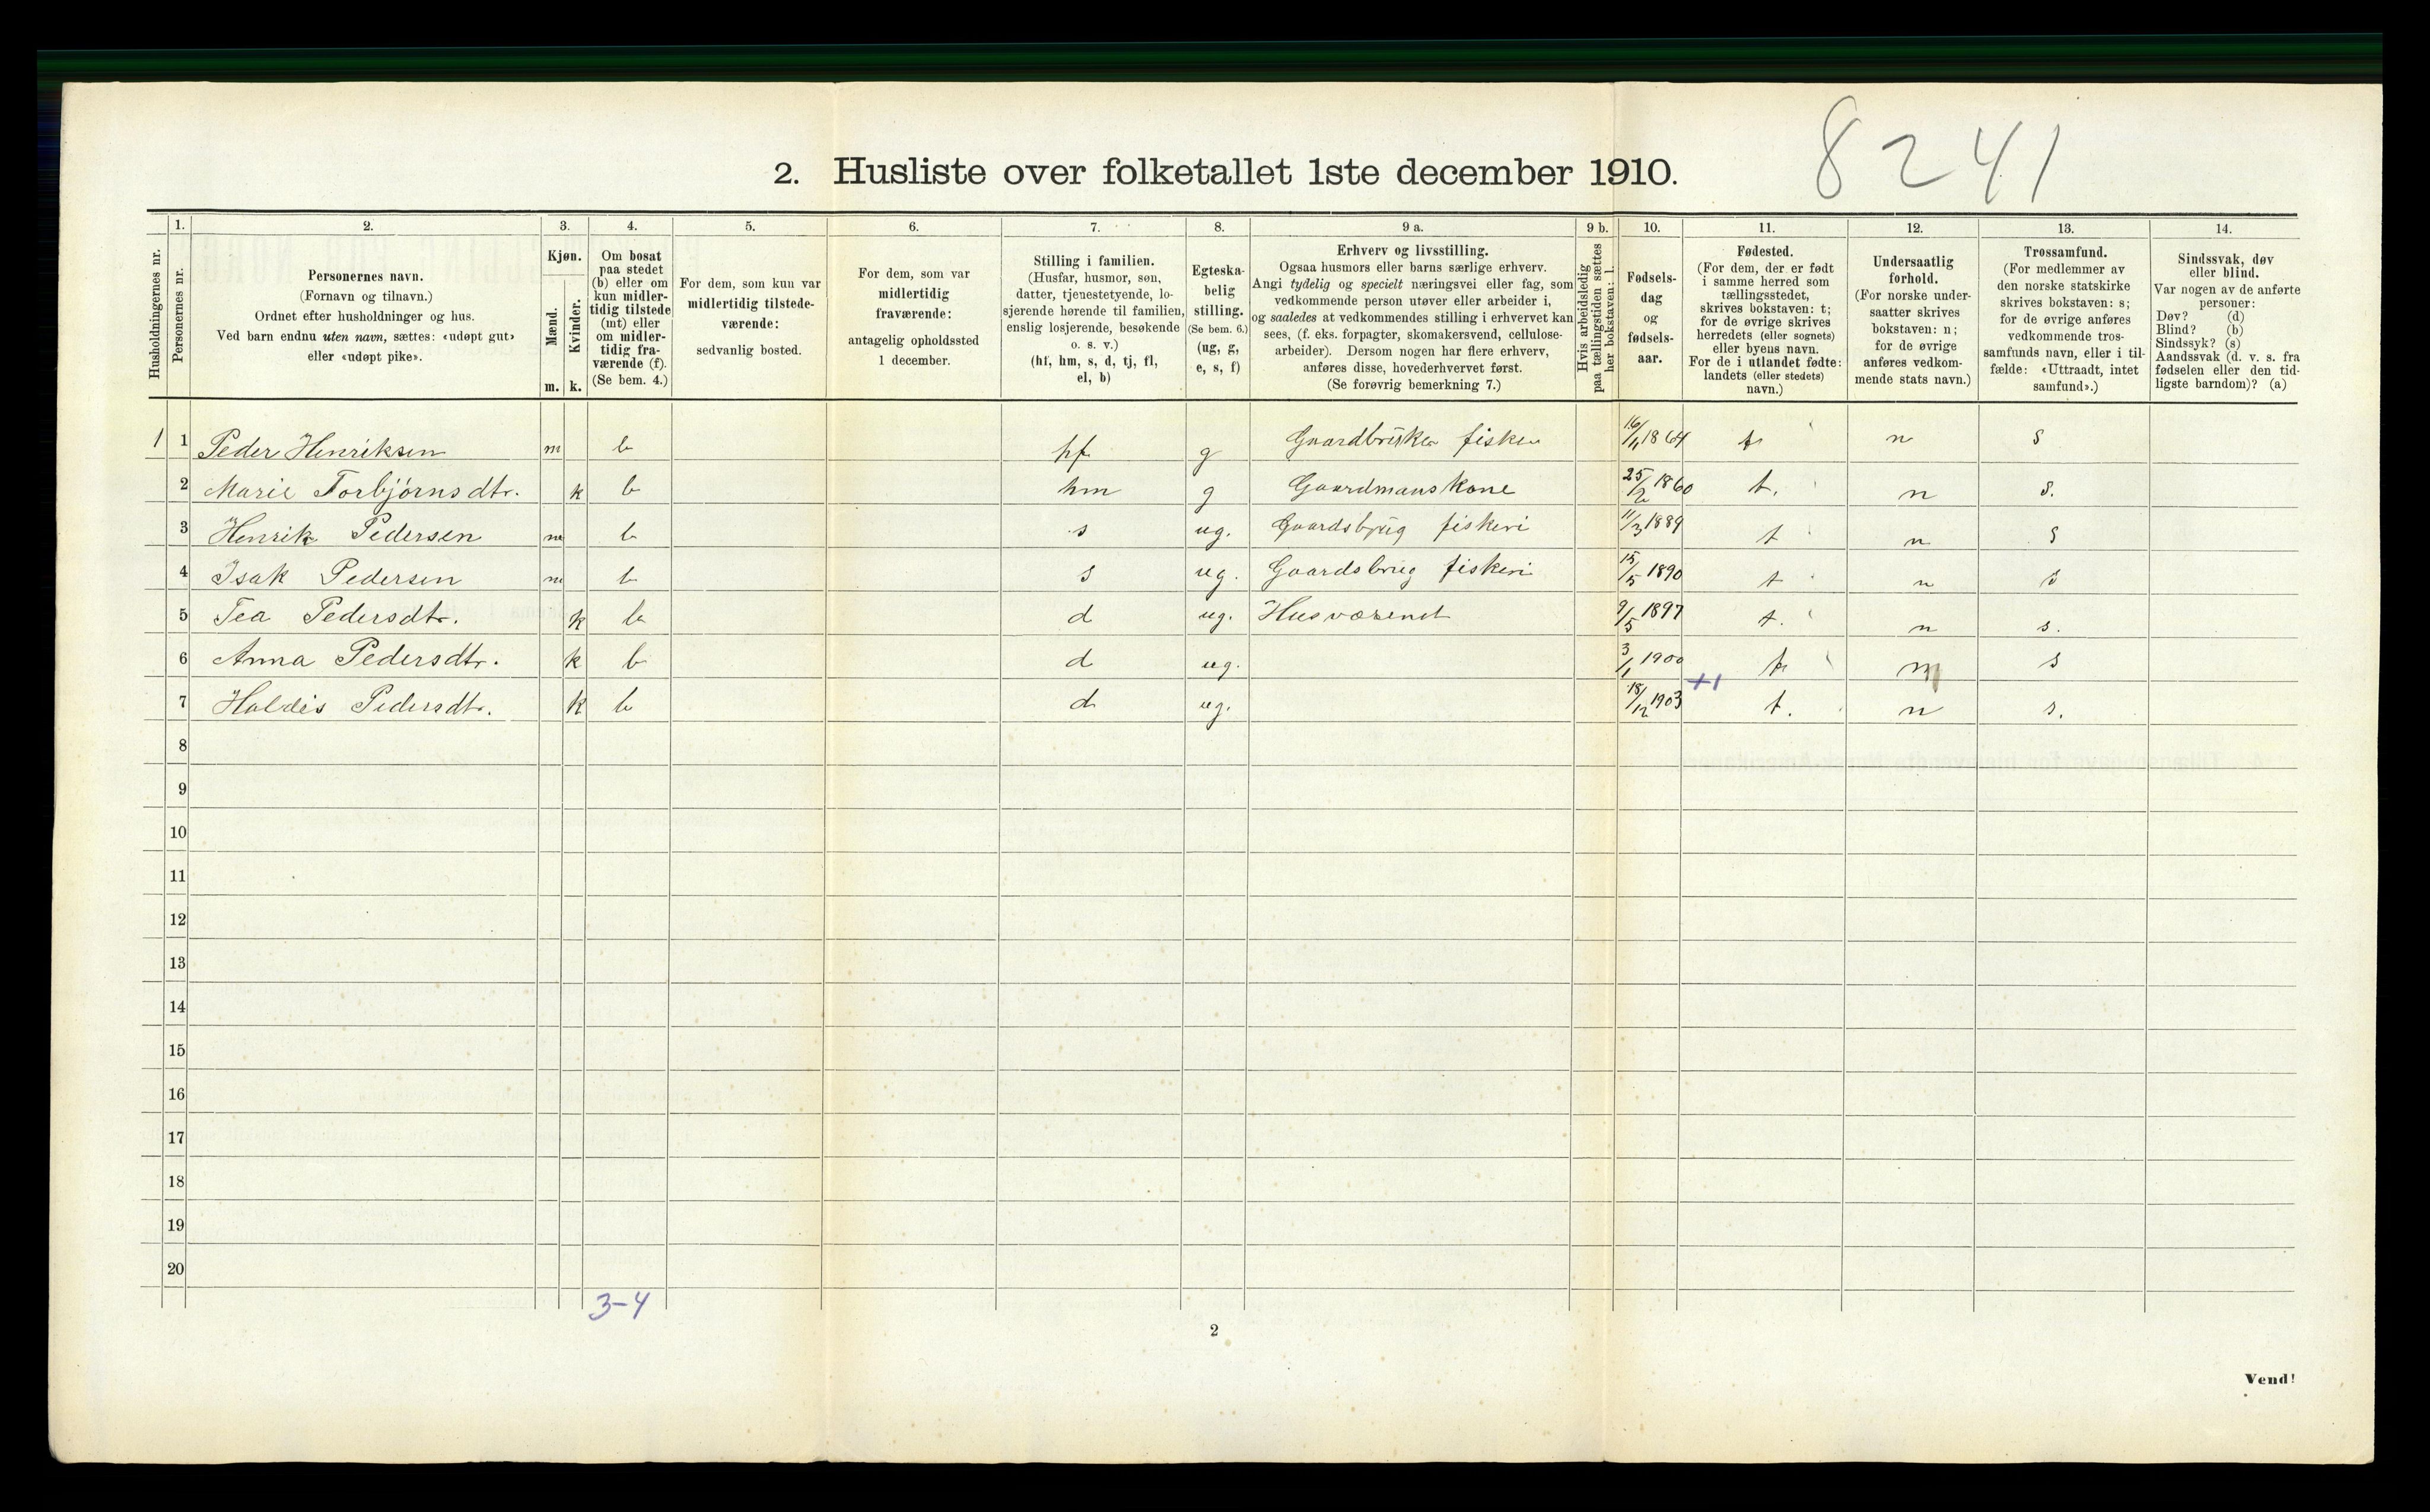 8241
2. Husliste over folketallet 1ste december 1910.
Husholdningernes nr.
1.
Personernes nr.
2.
Personernes navn.
(Fornavn og tilnavn.)
Ordnet efter husholdninger og hus.
Ved barn endnu uten navn, sættes: «udøpt gut»
eller «udøpt pike».
3.
Kjøn.
Mænd.
Kvinder.
m. k.
4.
Om bosat
paa stedet
(b) eller om
kun midler-
tidig tilstede
(mt) eller
om midler-
tidig fra-
værende (f).
(Se bem. 4.)
5.
For dem, som kun var
midlertidig tilstede-
værende:
sedvanlig bosted.
6.
For dem, som var
midlertidig
fraværende:
antagelig opholdssted
1 december.
7.
Stilling i familien.
(Husfar, husmor, søn,
datter, tjenestetyende, lo-
sjerende hørende til familien,
enslig losjerende, besøkende
o. s. v.)
(hf, hm, s, d, tj, fl,
el, b)
8.
Egteska-
belig
stilling.
(Se bem. 6.)
(ug, g,
e, s, f)
9 a.
Erhverv og livsstilling.
Ogsaa husmors eller barns særlige erhverv.
Angi tydelig og specielt næringsvei eller fag, som
vedkommende person utøver eller arbeider i,
og saaledes at vedkommendes stilling i erhvervet kan
sees, (f. eks. forpagter, skomakersvend, cellulose-
arbeider). Dersom nogen har flere erhverv,
anføres disse, hovederhvervet først.
(Se forøvrig bemerkning 7.)
9 b.
Hvis arbeidsledig
paa tællingstiden sættes
her bokstaven: l.
10.
Fødsels-
dag
og
fødsels-
aar.
11.
Fødested.
(For dem, der er født
i samme herred som
tællingsstedet,
skrives bokstaven: t;
for de øvrige skrives
herredets (eller sognets)
eller byens navn.
For de i utlandet fødte:
landets (eller stedets)
navn.)
12.
Undersaatlig
forhold.
(For norske under-
saatter skrives
bokstaven: n;
for de øvrige
anføres vedkom-
mende stats navn.)
13.
Trossamfund.
(For medlemmer av
den norske statskirke
skrives bokstaven: s;
for de øvrige anføres
vedkommende tros-
samfunds navn, eller i til-
fælde: «Uttraadt, intet
samfund».)
14.
Sindssvak, døv
eller blind.
Var nogen av de anførte
personer:
Døv? (d)
Blind? (b)
Sindssyk? (s)
Aandssvak (d. v. s. fra
fødselen eller den tid-
ligste barndom)? (a)
1 1 Peder Henriksen m b hf g Gaardbruker fisker 16/11 1864 t n s
2 Marie Torbjørnsdtr. k b hm g Gaardmanskone 25/2 1860 t. n s.
3 Henrik Pedersen m b s ug. Gaardsbrug fiskeri 11/3 1889 t n s
4 Isak Pedersen m b s ug. Gaardsbrug fiskeri 15/5 1890 t n s
5 Tea Pedersdtr. k b d ug. Husværend 9/5 1897 t. n s.
6 Anna Pedersdtr. k b d ug. 3/1 1900 t n s
7 Haldis Pedersdtr. k b d ug. 18/12 1903 +1 t. n s.
8
9
10
11
12
13
14
15
16
17
18
19
20
3-4
2
Vend!